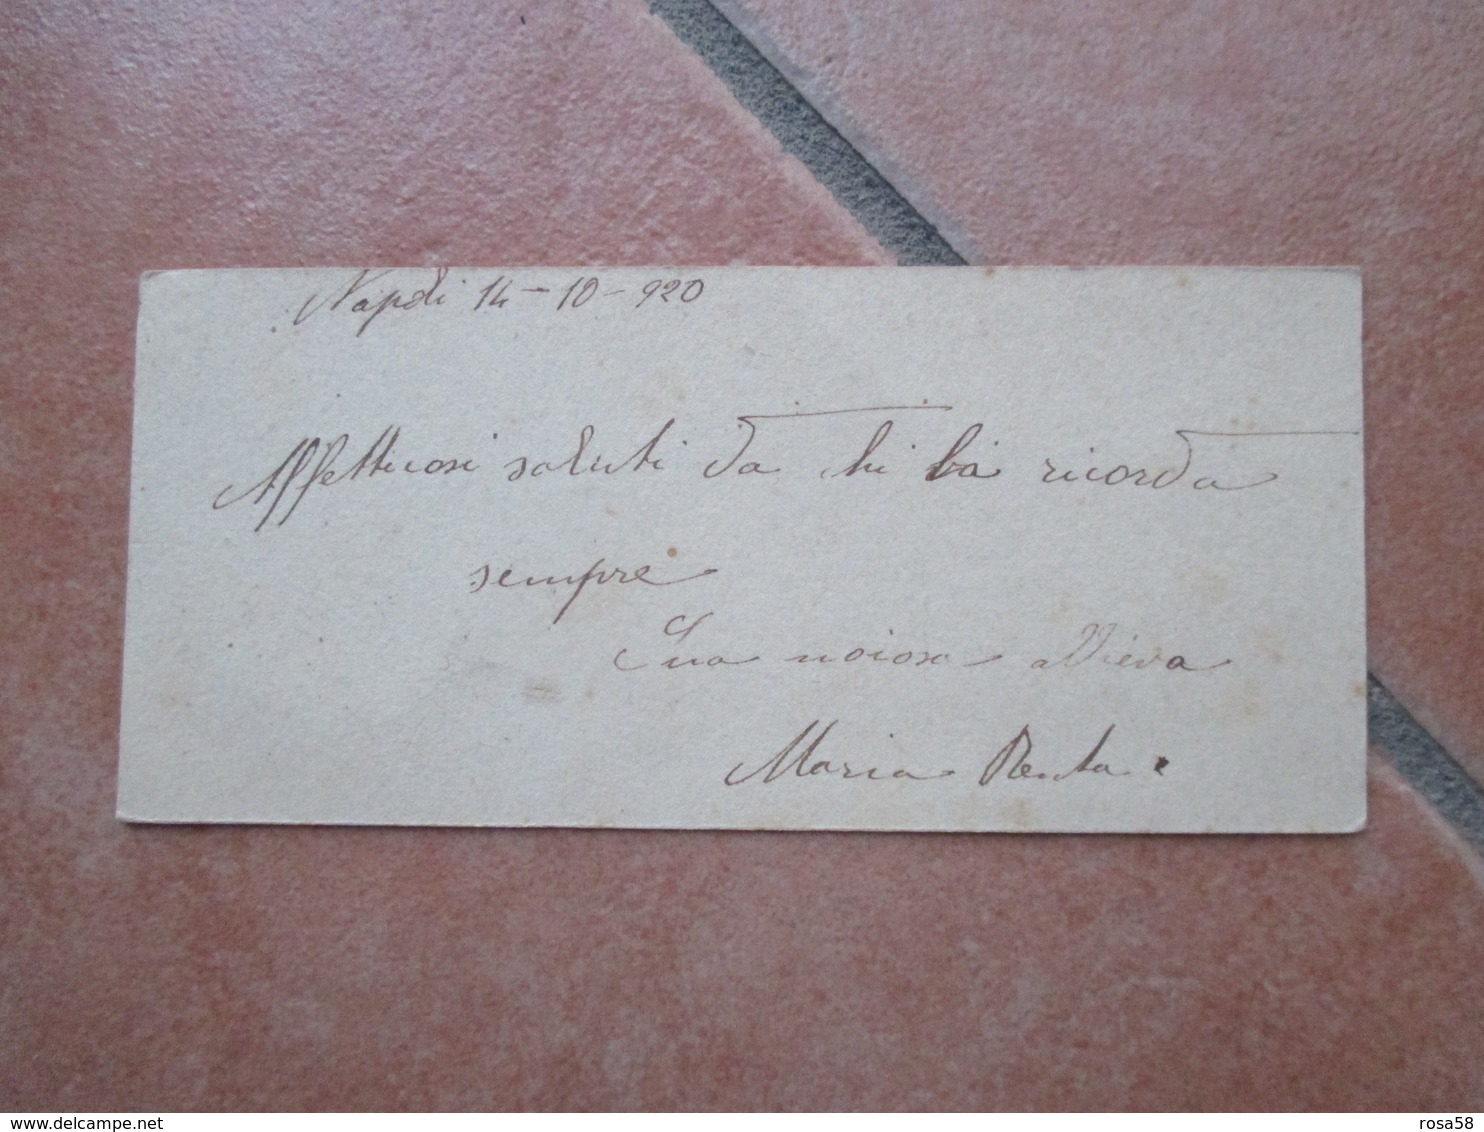 Napoli 14-10-920
Affettuosi saluti da chi la ricorda
sempre
Sua noiosa allieva
Maria Renta.
delcampe.net
rosa58